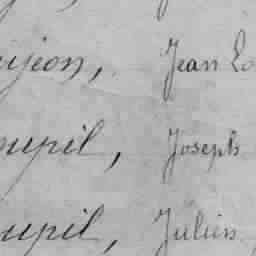 ujeon, Jean Lo
oupil, Joseph
oupil, Julien